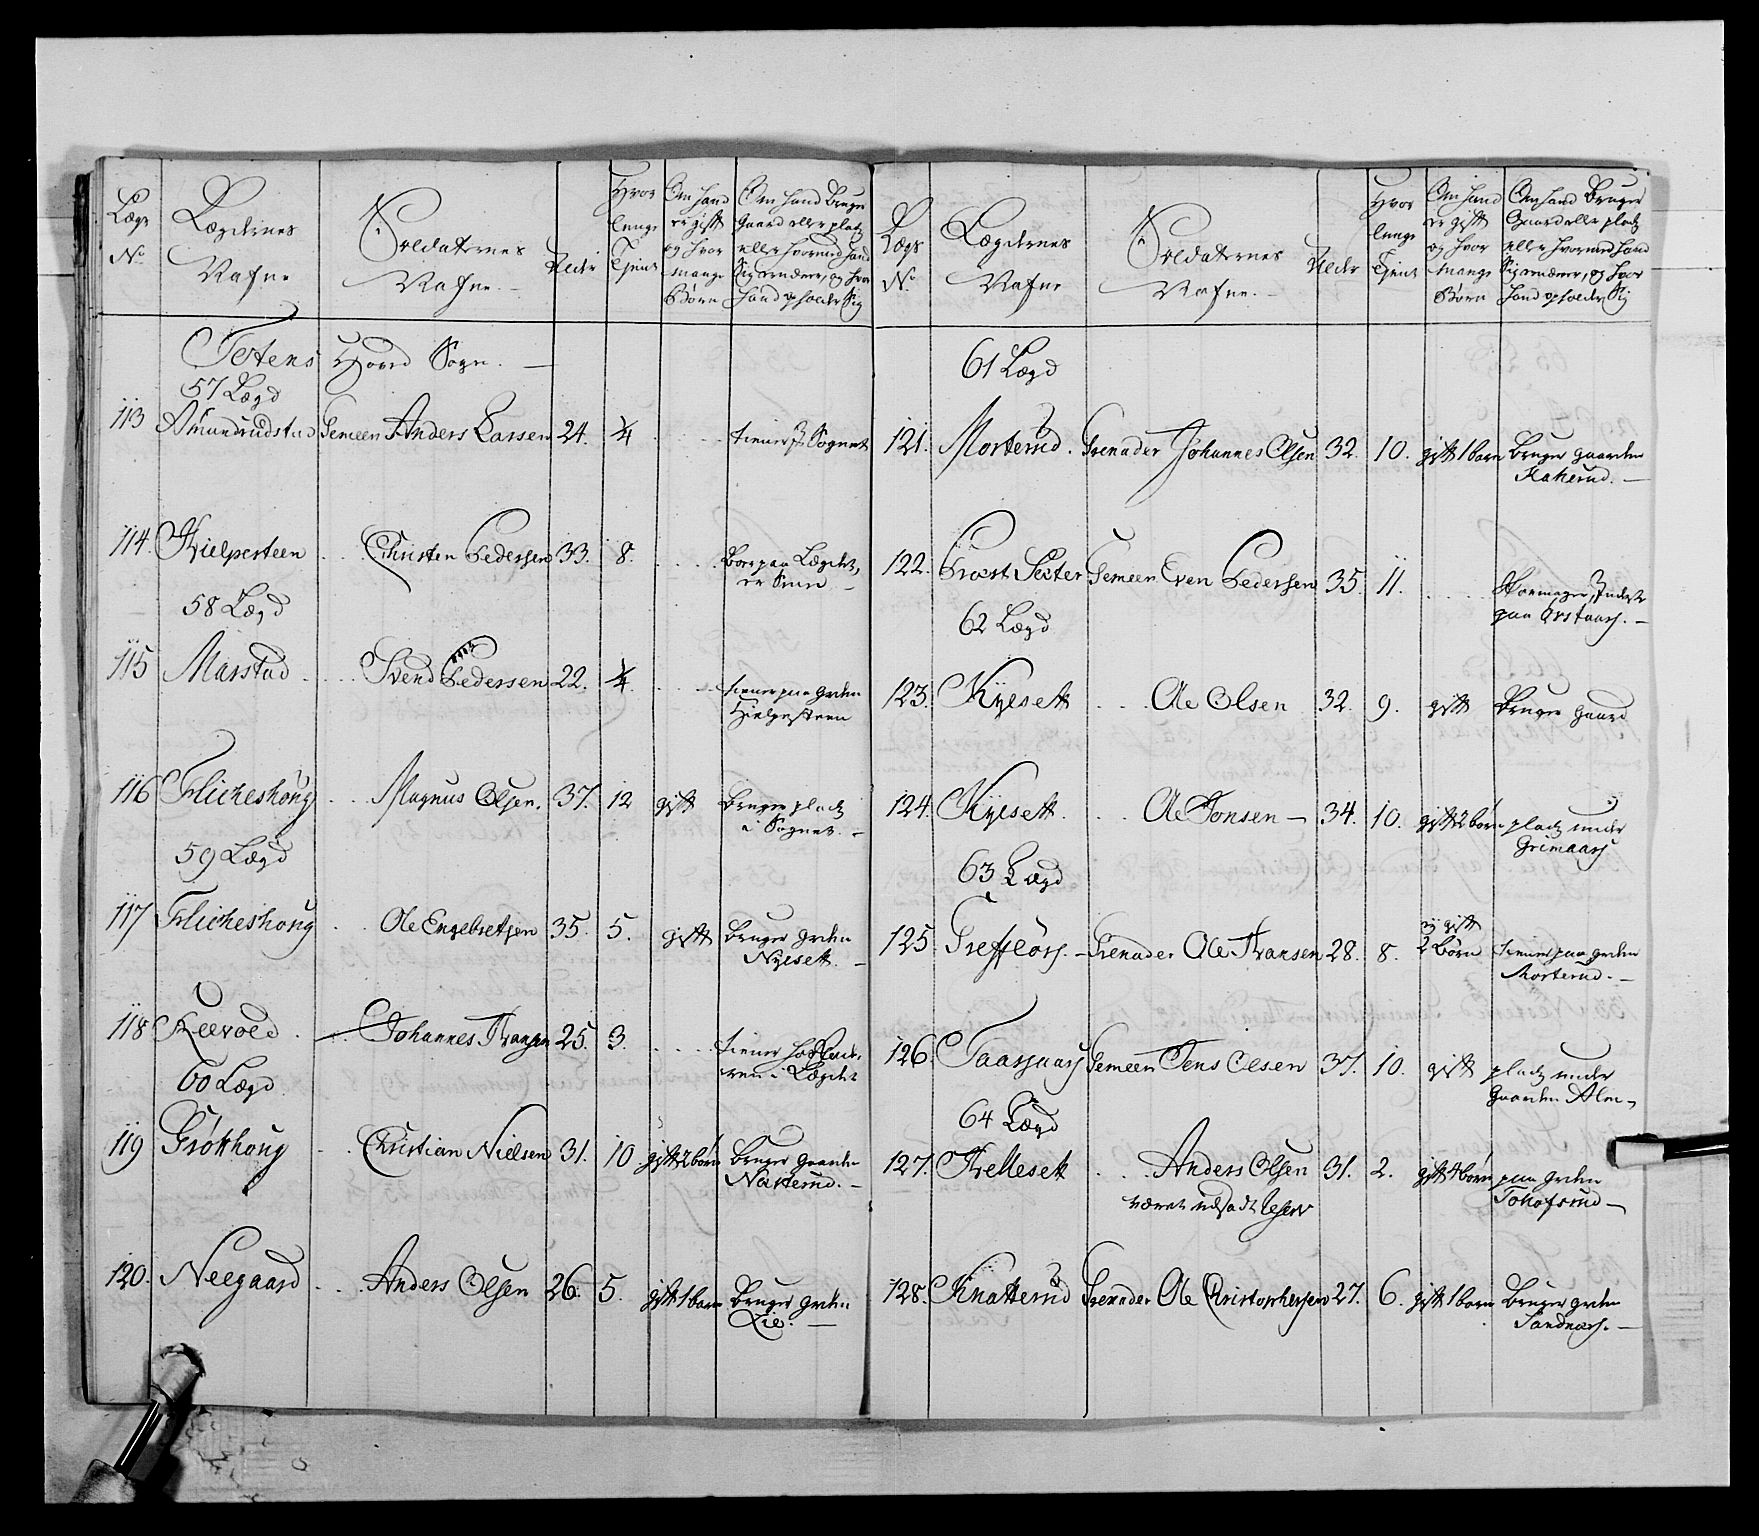 Lægs
No
Lægdernes
Nafne
Soldaternes
Nafne.
Alder
Hvor
lenge
Tjent
Om hand
er gift
og hvor
mange
Børn
Om hand bruger
Gaard eller platz
eller hvormed hand
Sig ernærer, og hvor
hand opholder Sig
Totens Hoved Sogn. —
57 Lægd
113 Amundrudstad Gemeen Anders Larsen 24. 1/4 tiener i Sognet
114. Kielpesteen Christen Pedersen 33. 8. Boer paa Lægdet,
er Smed —
58 Lægd
115 Marstad Svend Pedersen 22. 1/4 tiener paa Garden
Hielpesteen
116 Flicheshoug Magnus Olsen. 37. 12 gift Bruger platz
i Sognet. —
59 Lægd
117 Flicheshoug Ole Engebretsen 35. 5. gift Bruger garden
Nyesett. —
118 Leevold Johannes Hansen 25. 3. tiener hos
i Lægdet
60 Lægd
119 Grøkhoug Christian Nielsen 31. 10 gift 2 børn Bruger gaarden
Narterud. —
120. Neegaard Anders Olsen 26. 5. gift 1 barn Bruger garden
Lie. —
Lægs
No
Lægdernes
Nafne
Soldaternes
Nafne. —
Alder
Hvor
lenge
Tjent
Om hand
er gift
og hvor
mange
Børn
Om hand Bruger
Gaard eller platz
eller hvormed hand
Sig ernærer, og hvor
hand opholder Sig
61 Lægd
121. Morterud. Grenader Johannes Olsen 32. 10. gift 1 barn Bruger gaarden
Kakerud. —
122. Præst Sæter Gemeen Even Pedersen 35. 11. Skomager, Inderst
paa Ørstaas. —
62 Lægd
123. Kyesett Ole Olsen 32. 9. gift Bruger gaard
124. Kyesett. Ole Jonsen — 34. 10. gift 2 børn platz under
Grimaas
63 Lægd
125. Greffløs. — Grenader Ole Hansen 28. 8. gift
2 børn tiener paa garden
Morterud. —
126. Gemeen Jens Olsen 37. 10. gift platz under
Gaarden Alm —
64 Lægd
127. Hellesett Anders Olsen 31. 2. gift 4 børn paa garden
—
været udsadt Reserv
128. Knatterud Grenader Ole Christophersen 27. 6. gift 1 barn Bruger garden
Sandnæs. —